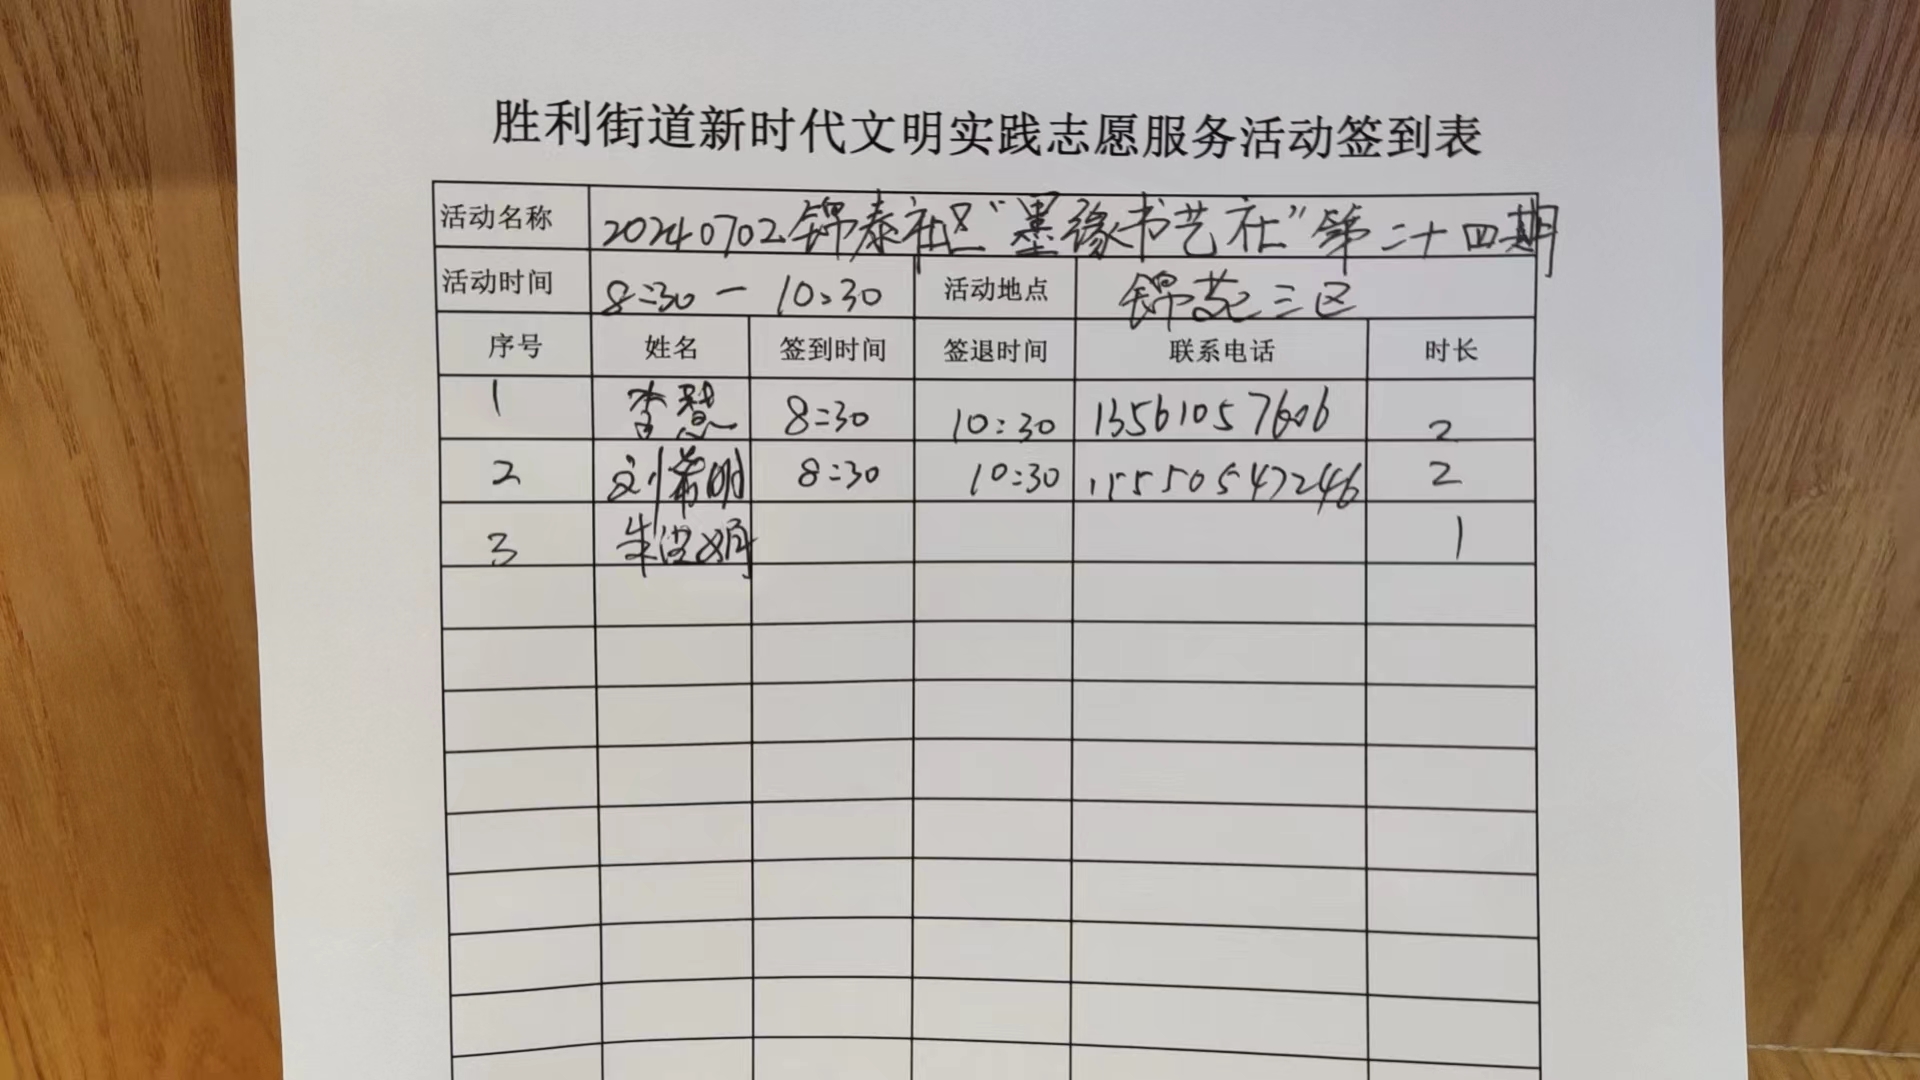 胜利街道新时代文明实践志愿服务活动签到表
活动名称 20240702锦泰社区“墨缘书艺社”第二十四期
活动时间 8:30 — 10:30 活动地点 锦苑三区
序号 姓名 签到时间 签退时间 联系电话 时长
1 李慧 8:30 10:30 13561057606 2
2 刘希明 8:30 10:30 15550547246 2
3 朱 1